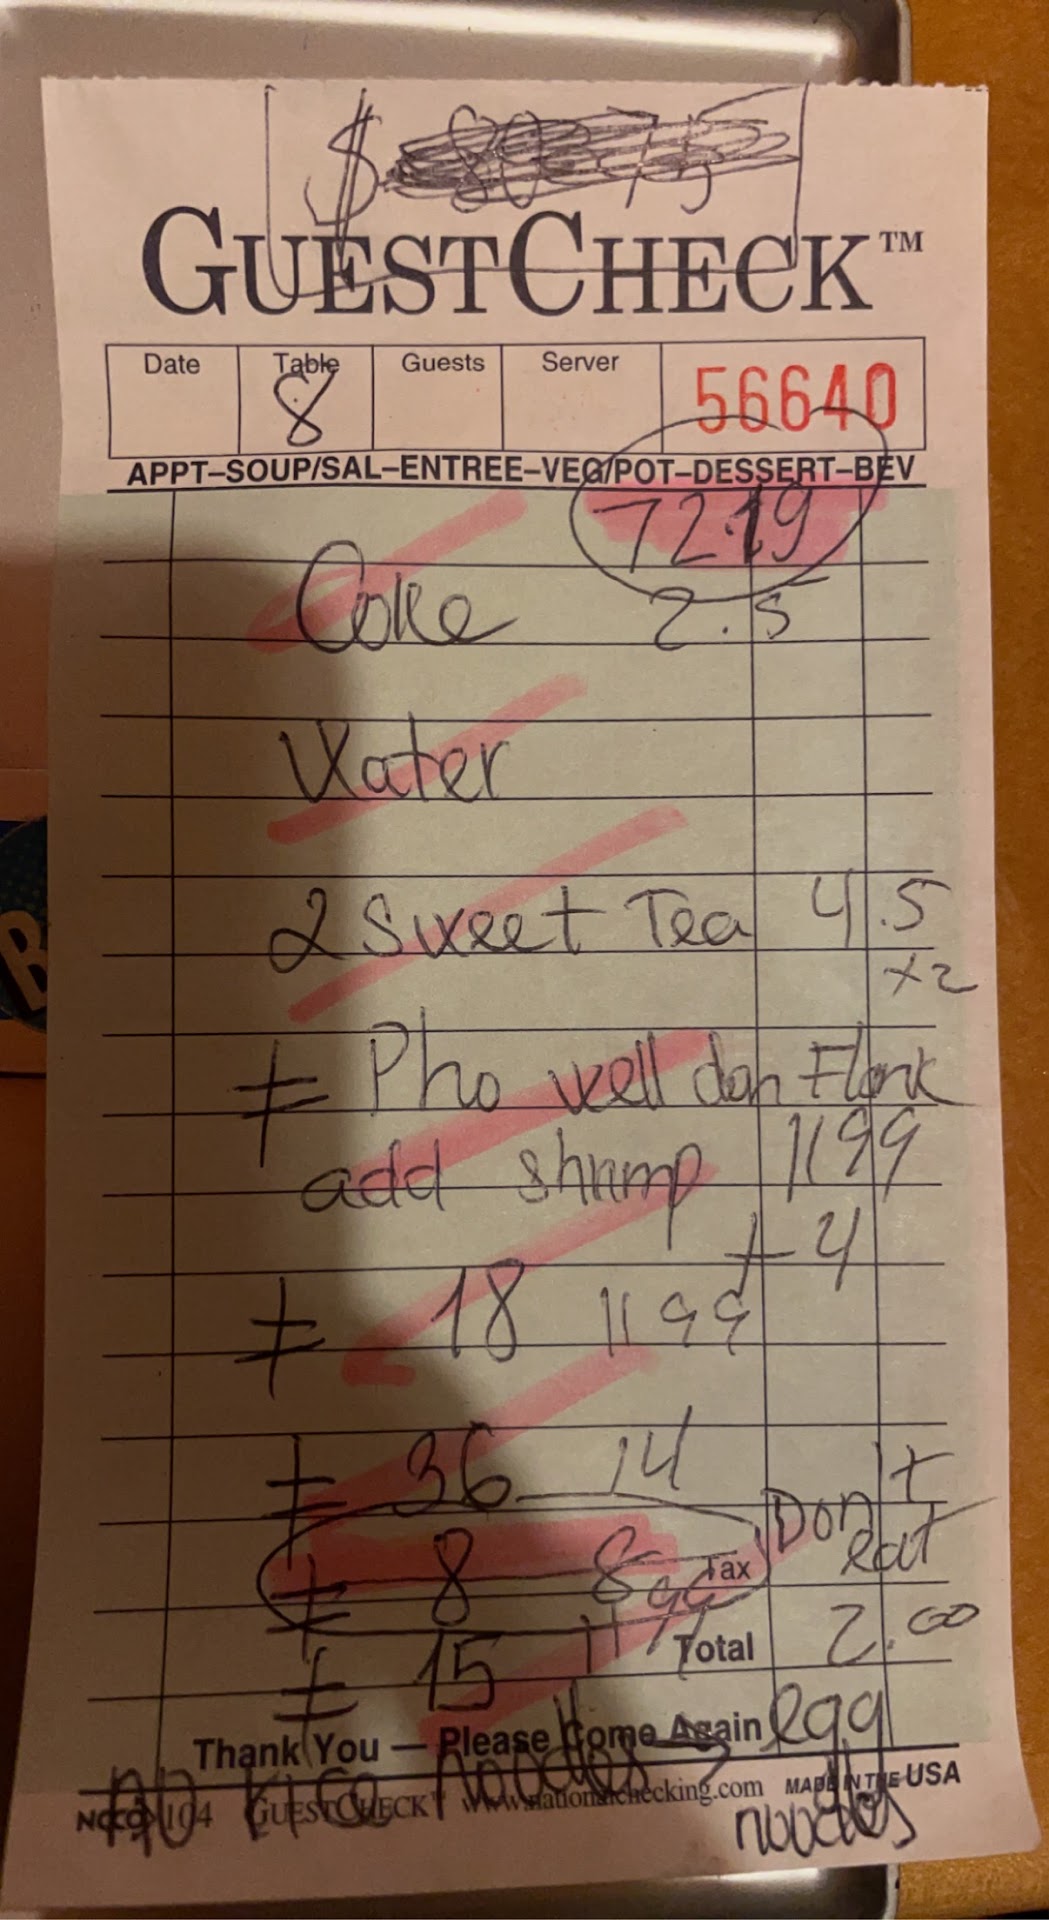 $
GUESTCHECK™
Date Table Guests Server
8 56640
APPT–SOUP/SAL–ENTREE–VEG/POT–DESSERT–BEV
72.19
Coke 2.5
Water
2 Sweet Tea 4.5
x2
Pho well don Flank
add shrimp 1199
+ 4
18 1199
36 14
Don't
eat
8 899 Tax
15 1199 Total 2.00
Thank You — Please Come Again egg
No rice noodles → egg
NCCO 104 GUESTCHECK™ www.nationalchecking.com MADE IN THE USA
noodles